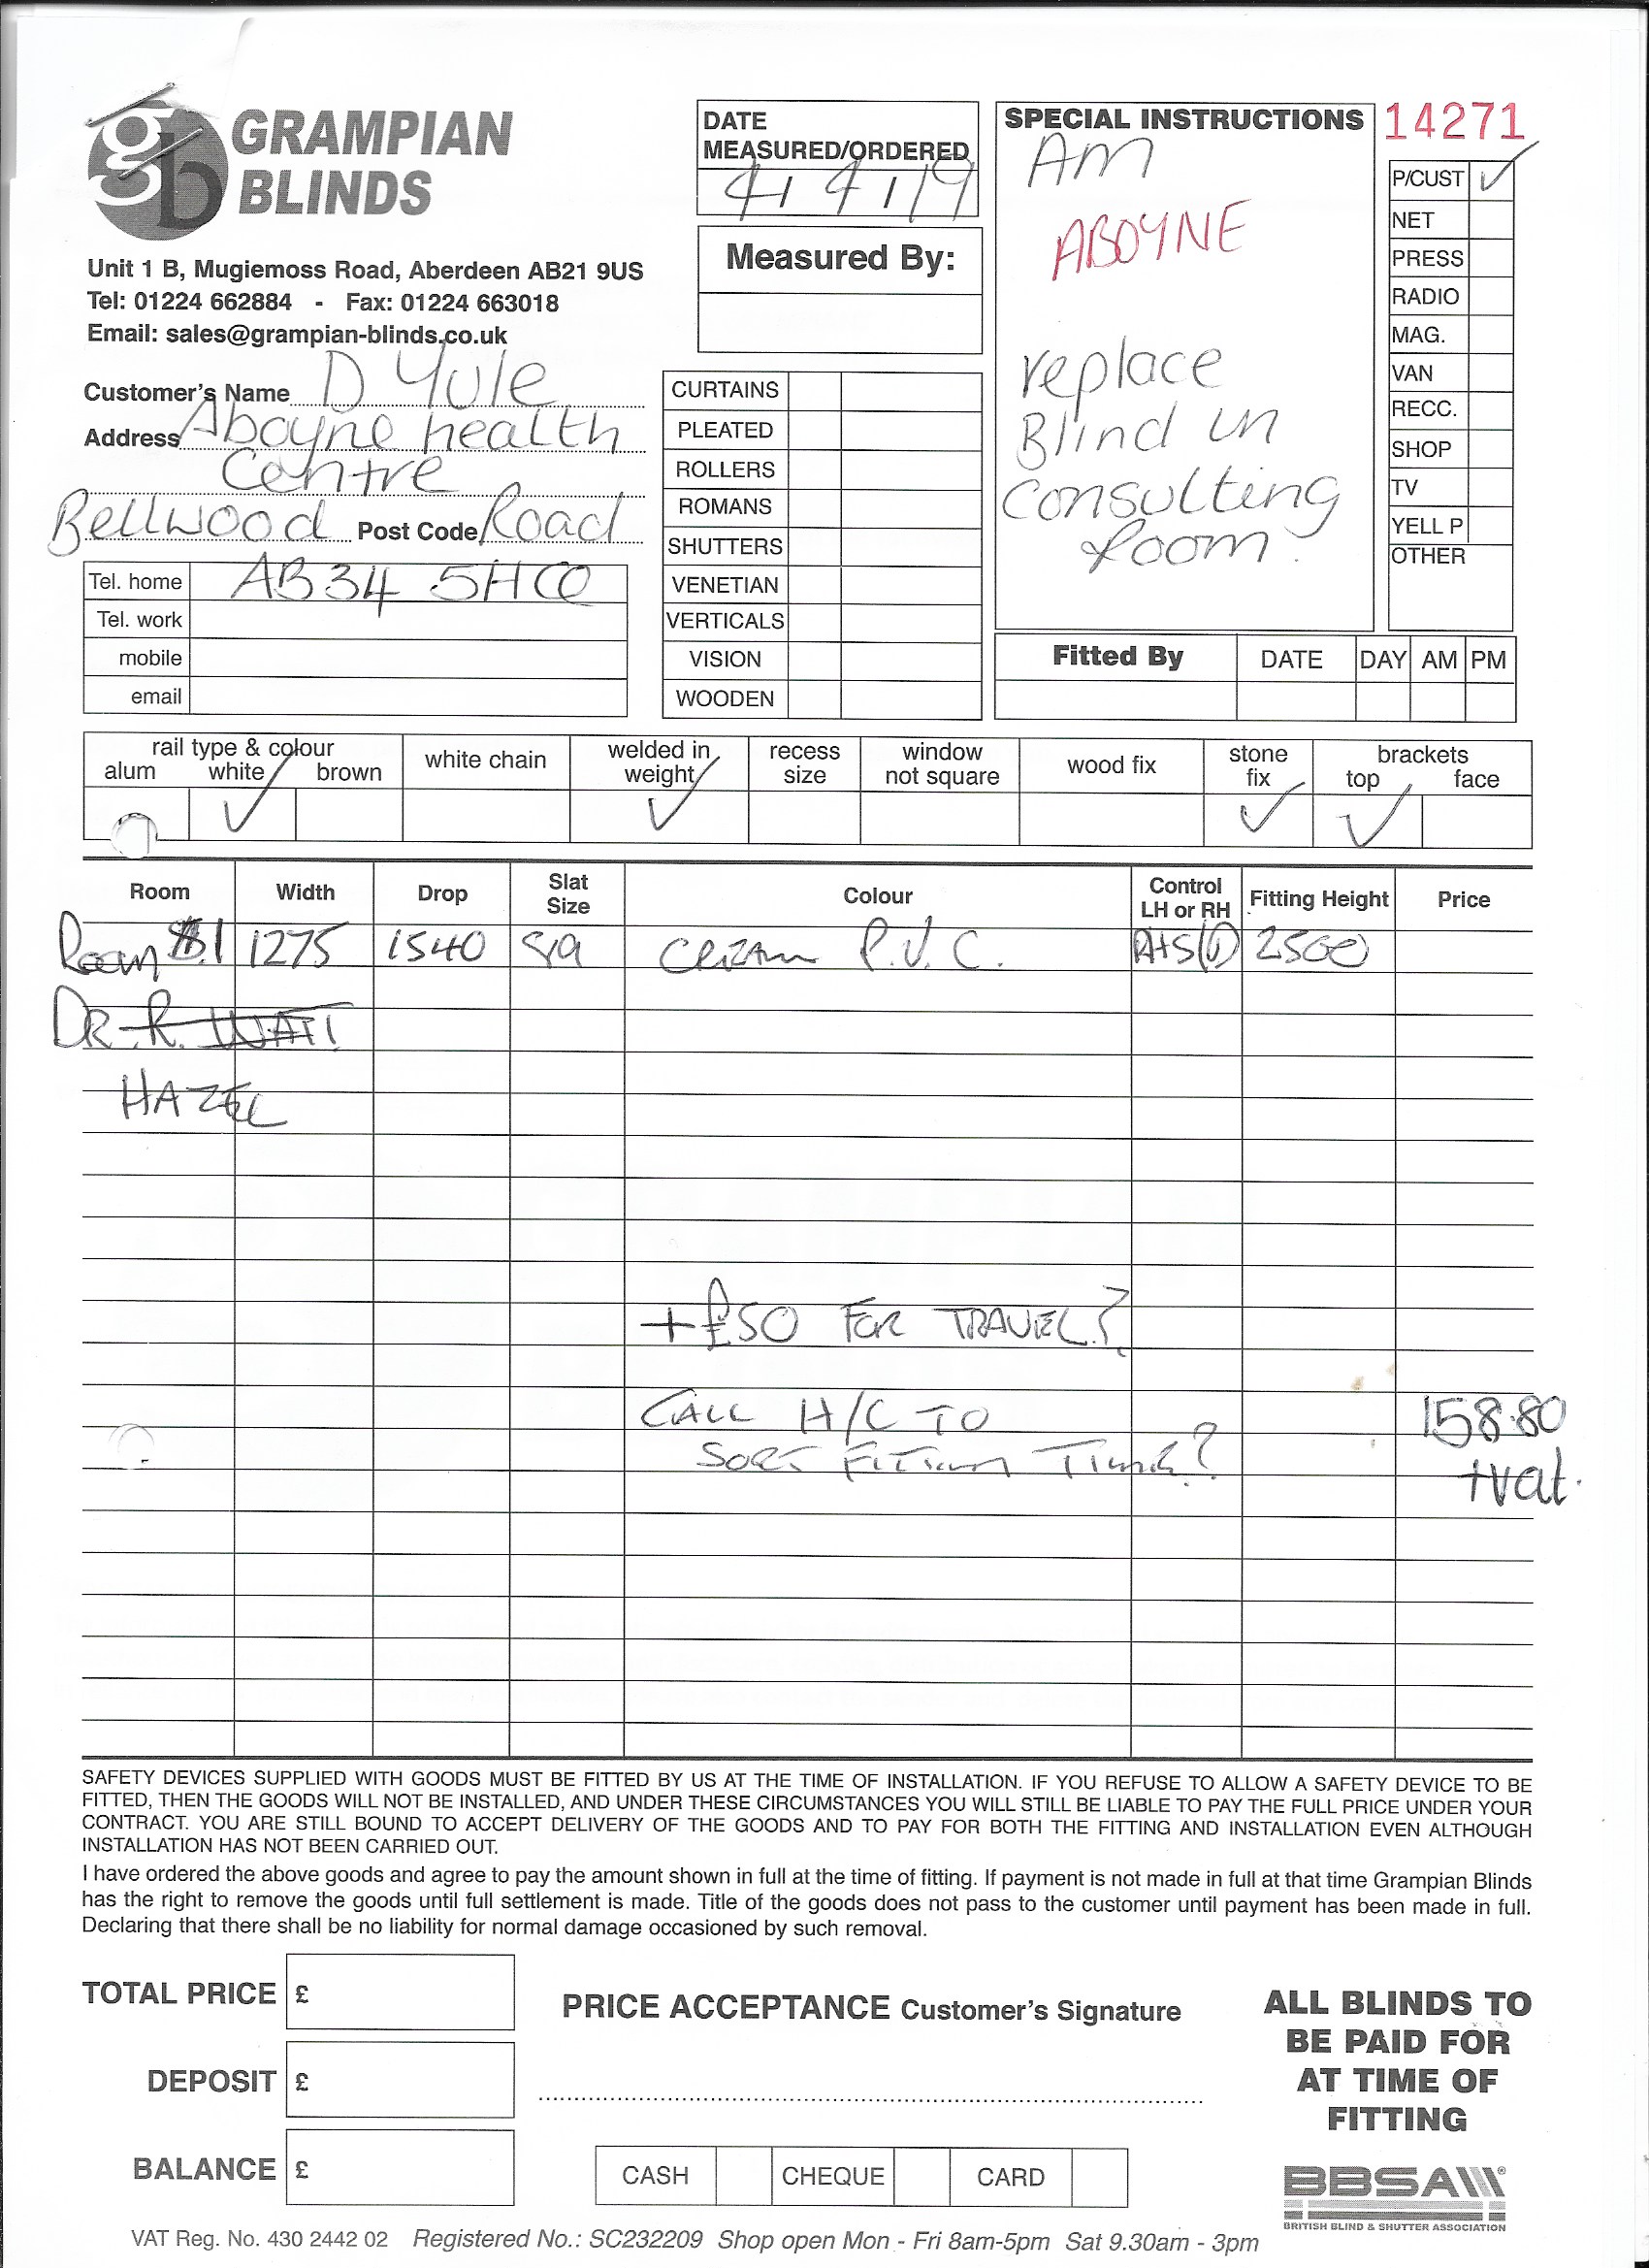 gb GRAMPIAN
BLINDS
Unit 1 B, Mugiemoss Road, Aberdeen AB21 9US
Tel: 01224 662884 - Fax: 01224 663018
Email: sales@grampian-blinds.co.uk
Customer's Name D Yule
Address Aboyne health
Centre
Bellwood Post Code Road
Tel. home AB34 5HQ
Tel. work
mobile
email
DATE
MEASURED/ORDERED
4/4/19
Measured By:
CURTAINS
PLEATED
ROLLERS
ROMANS
SHUTTERS
VENETIAN
VERTICALS
VISION
WOODEN
SPECIAL INSTRUCTIONS
AM
ABOYNE
replace
Blind in
Consulting
Room.
14271
P/CUST ✓
NET
PRESS
RADIO
MAG.
VAN
RECC.
SHOP
TV
YELL P
OTHER
Fitted By DATE DAY AM PM
rail type & colour
alum white brown
white chain
welded in
weight
recess
size
window
not square
wood fix
stone
fix
brackets
top face
✓ ✓ ✓ ✓
Room Width Drop Slat Size Colour Control LH or RH Fitting Height Price
Room 1 1275 1540 Cream P.V.C. 2500
DR R. WATT
HAZEL
+£50 FOR TRAVEL?
CALL H/C TO 158.80
SORT FITTING TIME? +vat.
SAFETY DEVICES SUPPLIED WITH GOODS MUST BE FITTED BY US AT THE TIME OF INSTALLATION. IF YOU REFUSE TO ALLOW A SAFETY DEVICE TO BE
FITTED, THEN THE GOODS WILL NOT BE INSTALLED, AND UNDER THESE CIRCUMSTANCES YOU WILL STILL BE LIABLE TO PAY THE FULL PRICE UNDER YOUR
CONTRACT. YOU ARE STILL BOUND TO ACCEPT DELIVERY OF THE GOODS AND TO PAY FOR BOTH THE FITTING AND INSTALLATION EVEN ALTHOUGH
INSTALLATION HAS NOT BEEN CARRIED OUT.
I have ordered the above goods and agree to pay the amount shown in full at the time of fitting. If payment is not made in full at that time Grampian Blinds
has the right to remove the goods until full settlement is made. Title of the goods does not pass to the customer until payment has been made in full.
Declaring that there shall be no liability for normal damage occasioned by such removal.
TOTAL PRICE £
DEPOSIT £
BALANCE £
PRICE ACCEPTANCE Customer's Signature
CASH CHEQUE CARD
ALL BLINDS TO
BE PAID FOR
AT TIME OF
FITTING
BBSA
BRITISH BLIND & SHUTTER ASSOCIATION
VAT Reg. No. 430 2442 02 Registered No.: SC232209 Shop open Mon - Fri 8am-5pm Sat 9.30am - 3pm